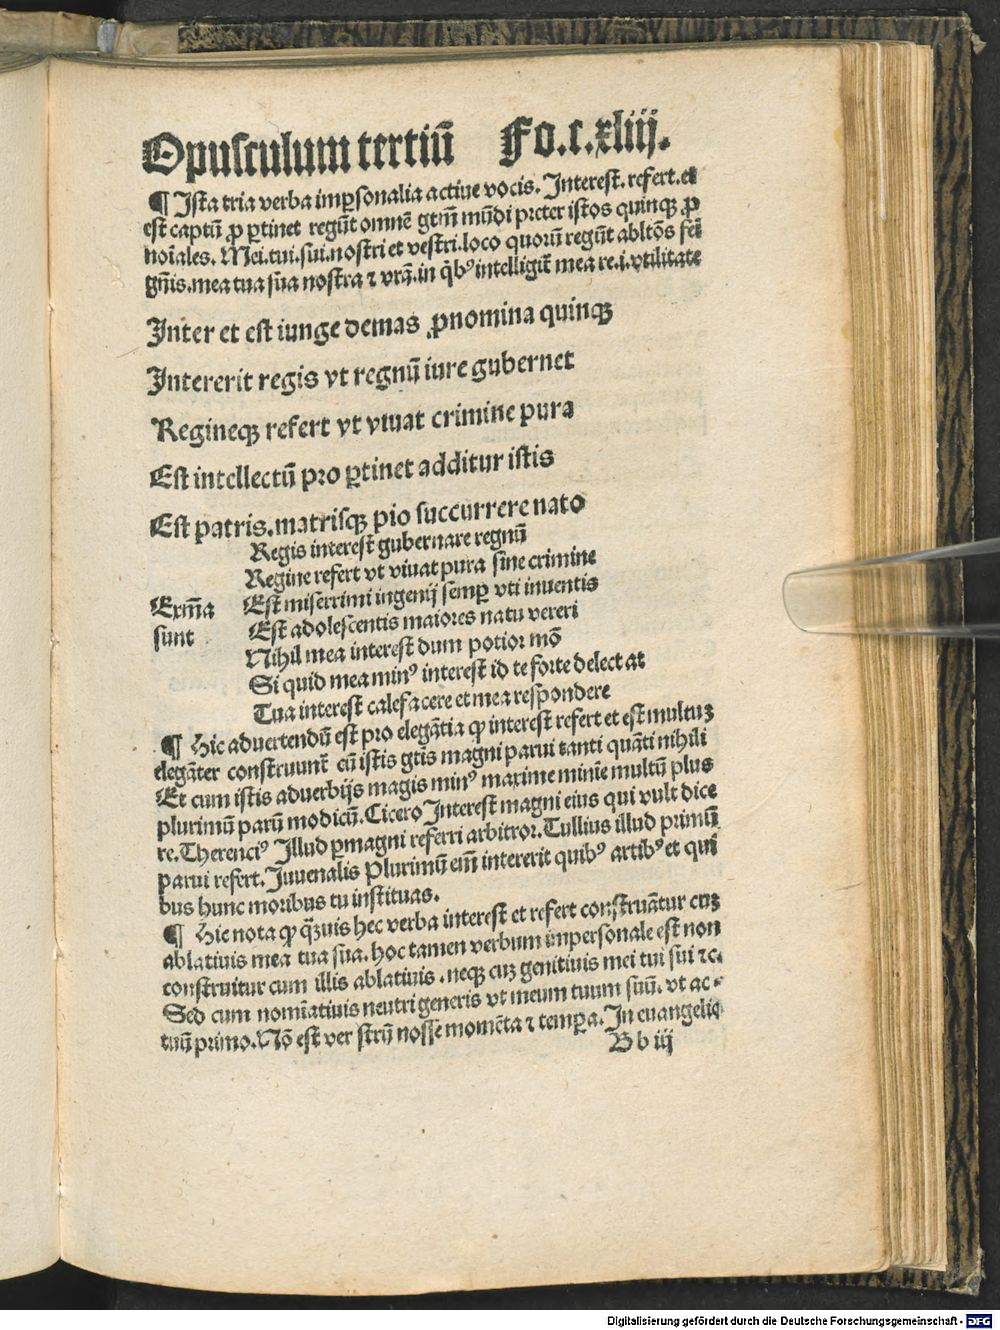 Opusculum tertiū Fo.c.xliij.
¶ Ista tria verba imꝑsonalia actiue vocis. Interest. refert. et
est captū ꝓ ꝑtinet regūt omnē gtm̄ mūdi preter istos quinqꝫ ꝓ
noīales. Mei. tui. sui. nostri et vestri. loco quorū regūt abltōs fēi
gn̄is. mea tua sua nostra ⁊ vr̄a. in q̄bꝰ intelligit̄ mea re .i. vtilitate
Inter et est iunge demas ꝓnomina quinqꝫ
Intererit regis vt regnū iure gubernet
Regineqꝫ refert vt viuat crimine pura
Est intellectū pro ꝑtinet additur istis
Est patris. matrisqꝫ pio succurrere nato
Regis interest gubernare regnū
Regine refert vt viuat pura sine crimine
Exm̄a Est miserrimi ingenij semꝑ vti inuentis
sunt Est adolescentis maiores natu vereri
Nihil mea interest dum potior mō
Si quid mea minꝰ interest id te forte delect at
Tua interest calefacere et mea respondere
¶ Hic aduertendū est pro elegātia ꝙ interest refert et est multuꝫ
elegāter construunt̄ cū istis gtis magni parui tanti quāti nihili
Et cum istis aduerbijs magis minꝰ maxime minīe multū plus
plurimū parū modicū. Cicero Interest magni eius qui vult dice
re. Therenciꝰ Illud ꝑmagni referri arbitror. Tullius illud primū
parui refert. Juuenalis Plurimū em̄ intererit quibꝰ artibꝰ et qui
bus hunc moribus tu instituas.
¶ Hic nota ꝙ q̄ꝫuis hec verba interest et refert construātur cuꝫ
ablatiuis mea tua sua. hoc tamen verbum impersonale est non
construitur cum illis ablatiuis . neqꝫ cuꝫ genitiuis mei tui sui ⁊c.
Sed cum nomīatiuis neutri generis vt meum tuum suū. vt ac-
tuū primo. Nō est ver strū nosse momēta ⁊ temꝑa. In euangelio
B b iij
Digitalisierung gefördert durch die Deutsche Forschungsgemeinschaft - DFG